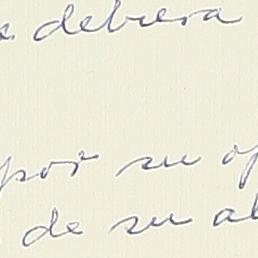 debiera
por su
de su